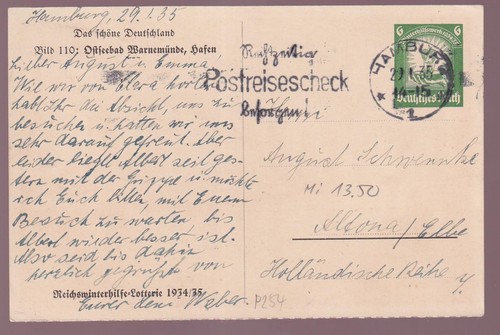 Hamburg, 29.1.35
Das schöne Deutschland
Bild 110: Ostseebad Warnemünde, Hafen
Lieber August u. Emma,
Wie wir von Clara hörten
habt Ihr die Absicht, uns zu
besuchen u. hatten wir uns
sehr darauf gefreut. Aber
leider liegt Albert seit ges-
tern mit der Grippe u. möchte
ich Euch bitten, mit Eurem
Besuch zu warten bis
Albert wieder besser ist.
Also seid bis dahin
herzlich gegrüßt von
Reichswinterhilfe-Lotterie 1934/35
Weber.
Rechtzeitig
Postreisescheck
besorgen!
6 6
Deutsches Reich
HAMBURG
29.1.35
14-15
* 1
Herrn
August Schwenntke
Mi 13.50
Altona/Elbe
Holländische Reihe
P254